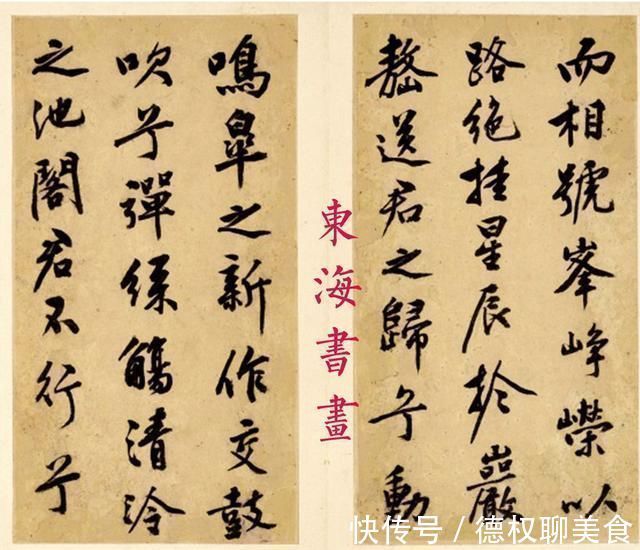 而相號峯崢嶸以
路絶挂星辰於巖
嶅送君之歸兮動
鳴皋之新作交鼓
吹兮彈絲觴清泠
之池閣君不行兮
東海書畫
快传号 / 德权聊美食